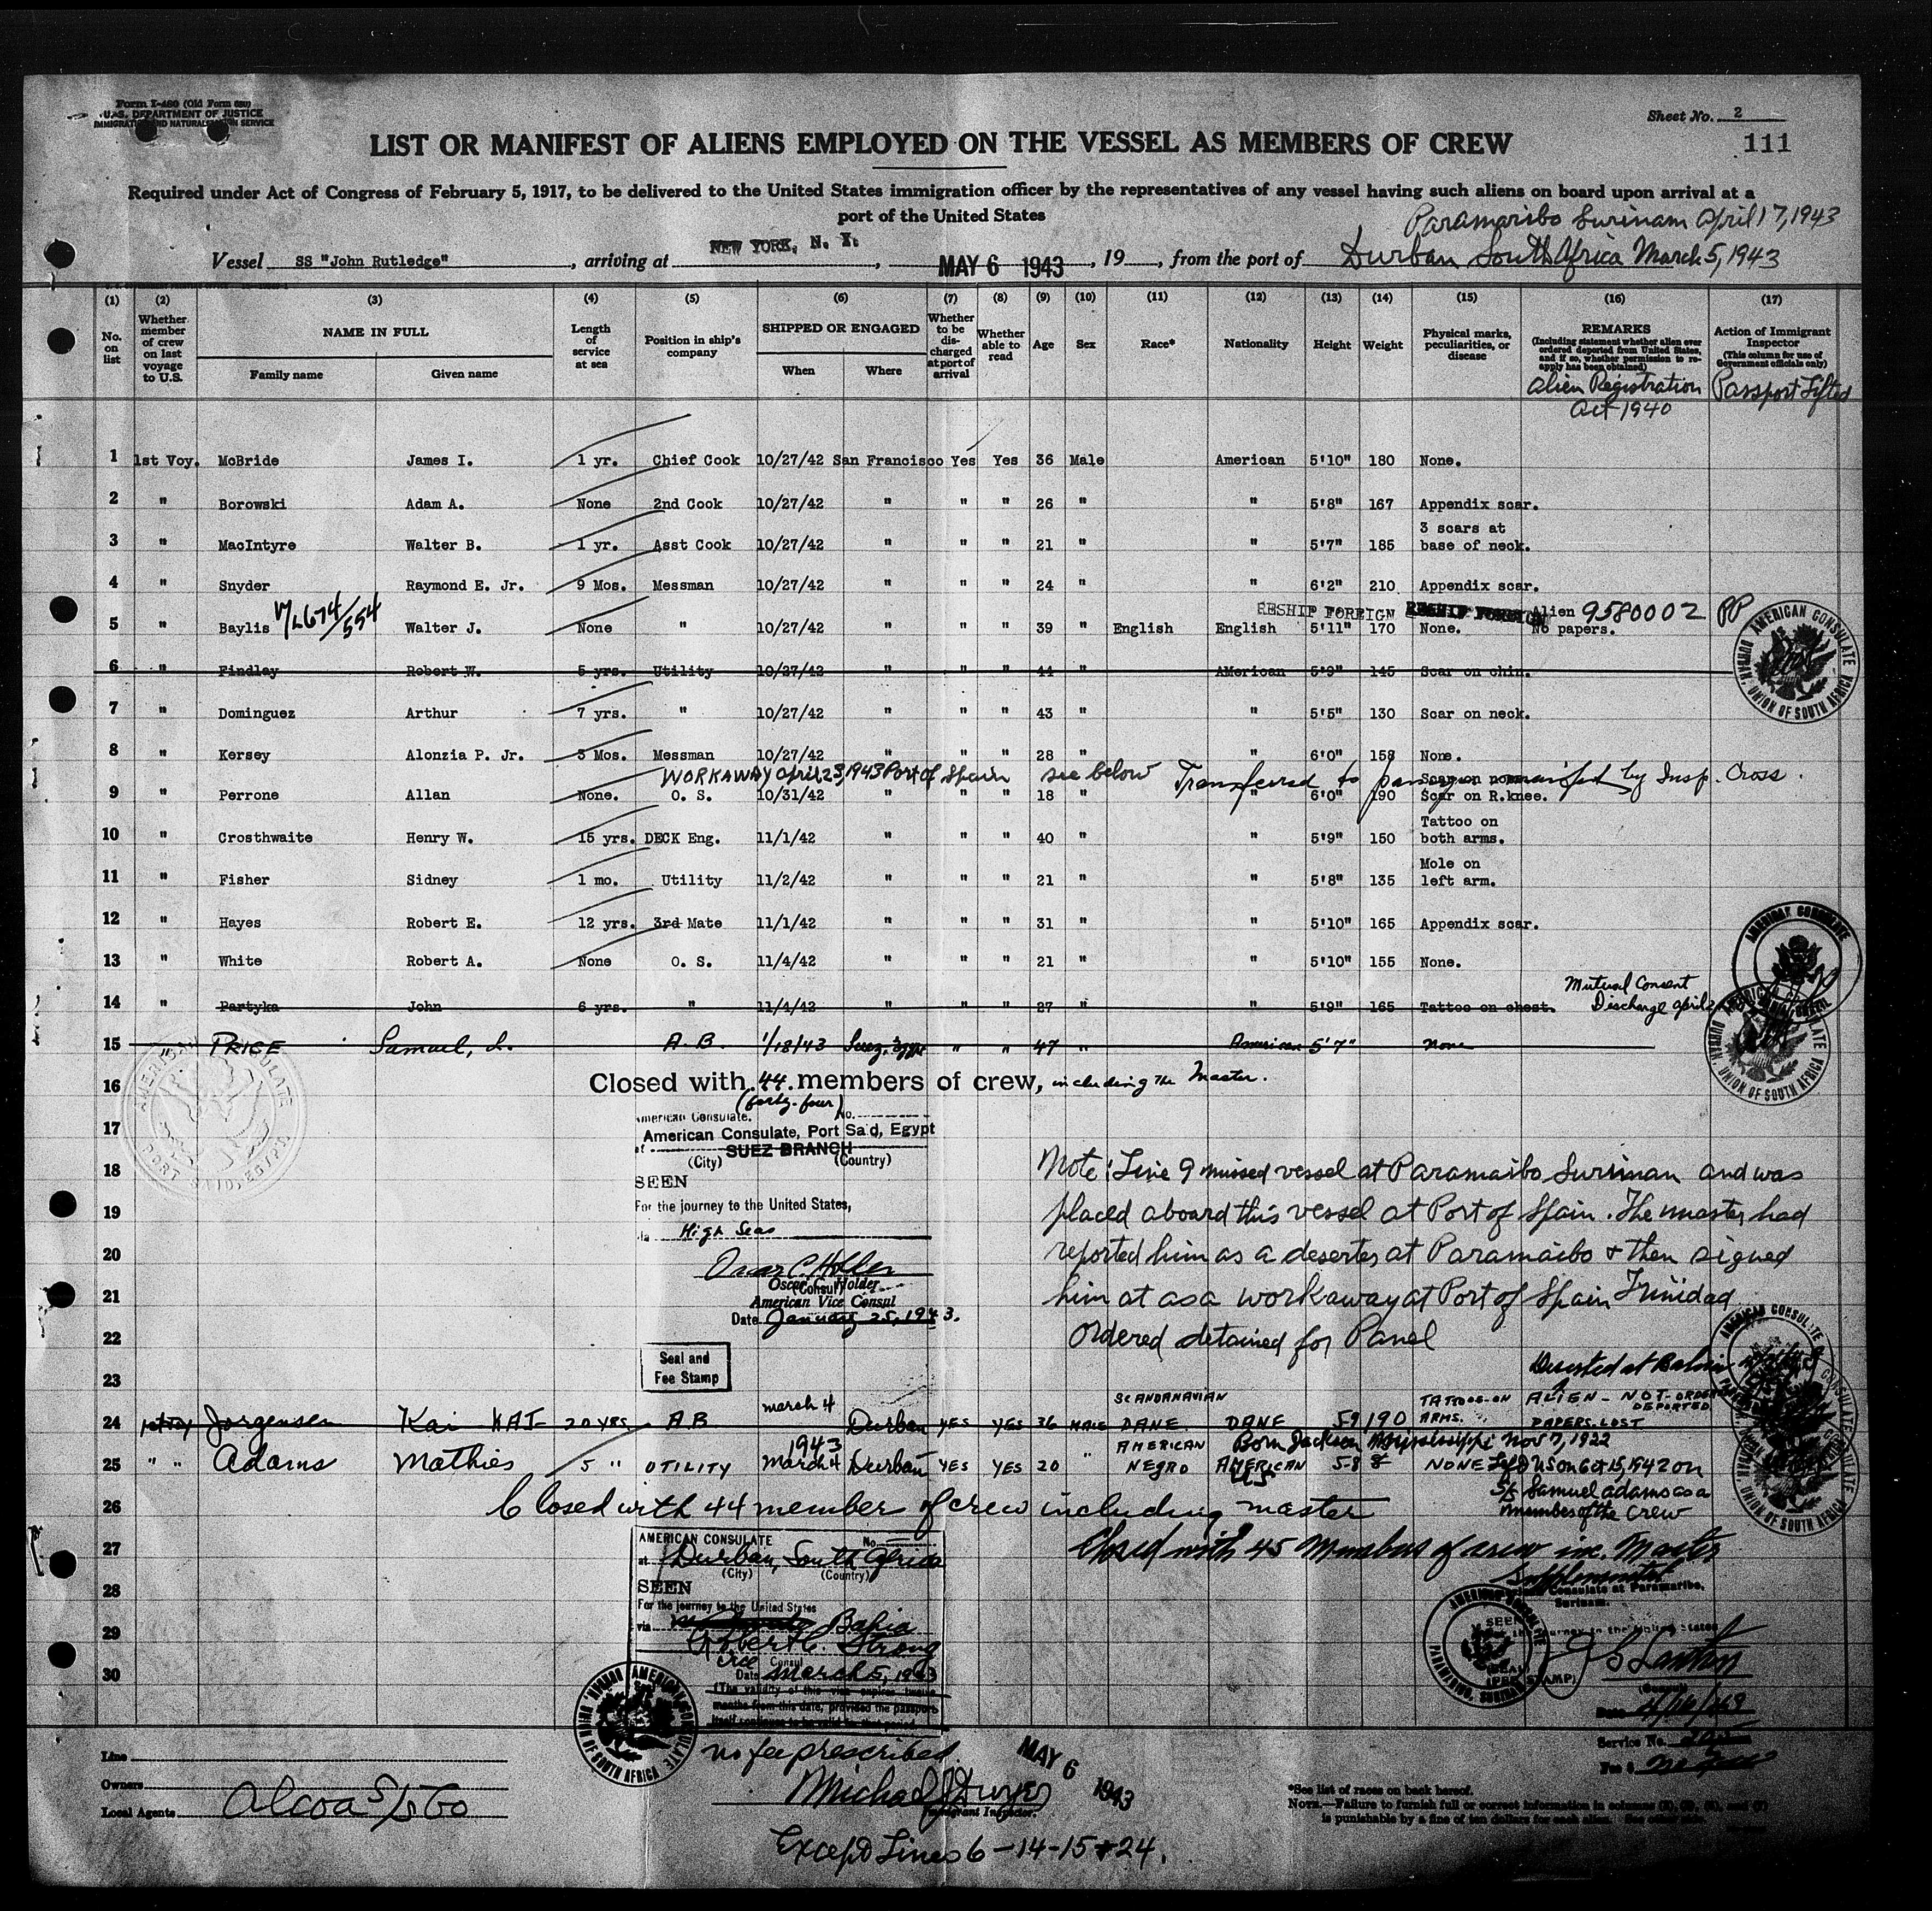 Form I-480 (Old Form 680)
U.S. DEPARTMENT OF JUSTICE
IMMIGRATION AND NATURALIZATION SERVICE
Sheet No. 2
111
LIST OR MANIFEST OF ALIENS EMPLOYED ON THE VESSEL AS MEMBERS OF CREW
Required under Act of Congress of February 5, 1917, to be delivered to the United States immigration officer by the representatives of any vessel having such aliens on board upon arrival at a
port of the United States
Paramaribo Surinam April 17, 1943
Vessel SS "John Rutledge", arriving at NEW YORK, N. Y., MAY 6 1943, 19, from the port of Durban South Africa March 5, 1943
(1) (2) (3) (4) (5) (6) (7) (8) (9) (10) (11) (12) (13) (14) (15) (16) (17)
No. on list
Whether member of crew on last voyage to U.S.
NAME IN FULL
Family name Given name
Length of service at sea
Position in ship's company
SHIPPED OR ENGAGED
When Where
Whether to be discharged at port of arrival
Whether able to read
Age Sex Race* Nationality Height Weight
Physical marks, peculiarities, or disease
REMARKS
(Including statement whether alien ever ordered deported from United States, and if so, whether permission to reapply has been obtained)
Alien Registration
Act 1940
Action of Immigrant Inspector
(This column for use of Government officials only)
Passport Lifted
1 1st Voy. McBride James I. 1 yr. Chief Cook 10/27/42 San Francisco Yes Yes 36 Male American 5'10" 180 None.
2 " Borowski Adam A. None 2nd Cook 10/27/42 " " " 26 " " 5'8" 167 Appendix scar.
3 " MacIntyre Walter B. 1 yr. Asst Cook 10/27/42 " " " 21 " " 5'7" 185 3 scars at base of neck.
4 " Snyder Raymond E. Jr. 9 Mos. Messman 10/27/42 " " " 24 " " 6'2" 210 Appendix scar.
RESHIP FOREIGN RESHIP FOREIGN Alien 9580002 PP
5 " Baylis V/L 674/554 Walter J. None " 10/27/42 " " " 39 " English English 5'11" 170 None. No papers.
6 " Findley Robert W. 5 yrs. Utility 10/27/42 " " " 44 " American 5'9" 145 Scar on chin.
7 " Dominguez Arthur 7 yrs. " 10/27/42 " " " 43 " " 5'5" 130 Scar on neck.
8 " Kersey Alonzia P. Jr. 3 Mos. Messman 10/27/42 " " " 28 " " 6'0" 158 None.
WORKAWAY April 23, 1943 Port of Spain see below Transferred to manifest by Insp. Cross.
9 " Perrone Allan None. O. S. 10/31/42 " " " 18 " " 6'0" 190 Scar on R.knee.
10 " Crosthwaite Henry W. 15 yrs. DECK Eng. 11/1/42 " " " 40 " " 5'9" 150 Tattoo on both arms.
11 " Fisher Sidney 1 mo. Utility 11/2/42 " " " 21 " " 5'8" 135 Mole on left arm.
12 " Hayes Robert E. 12 yrs. 3rd Mate 11/1/42 " " " 31 " " 5'10" 165 Appendix scar.
13 " White Robert A. None O. S. 11/4/42 " " " 21 " " 5'10" 155 None.
14 " Partyka John 6 yrs. " 11/4/42 " " " 27 " " 5'9" 165 Tattoo on chest. Mutual Consent Discharge April
15 " PRICE Samuel, L. A.B. 1/18/43 Suez, " " 47 " American 5'7" none
16 Closed with 44 members of crew, including the Master.
(forty-four)
17 American Consulate. No.
American Consulate, Port Said, Egypt
at SUEZ BRANCH
18 (City) (Country)
SEEN
19 For the journey to the United States,
via High Seas
20 Oscar C. Holder
Oscar C. Holder
(Consul)
21 American Vice Consul
Date January 25, 1943.
22
Seal and
Fee Stamp
23
Note: Line 9 missed vessel at Paramaibo Surinam and was
placed aboard this vessel at Port of Spain. The master had
reported him as a deserter at Paramaibo & then signed
him at as a workaway at Port of Spain Trinidad
Ordered detained for Panel
Deserted at Bahia
24 1st Voy Jorgensen Kai KAI 20 YRS A B march 4 Durban YES YES 36 MALE SCANDANAVIAN DANE DANE 5 9 190 TATOOS-ON ARMS. ALIEN - NOT-ORDERED DEPORTED PAPERS-LOST
25 " " Adams Mathies 5 " UTILITY 1943 March 4 Durban YES YES 20 " AMERICAN NEGRO AMERICAN US 5-8 NONE Born Jackson Mississippi Nov 7, 1922
Lft US on Oct 15, 1942 on
SS Samuel Adams as a
member of the Crew
26 Closed with 44 member of crew including master
27 Closed with 45 Members of crew inc. Master
AMERICAN CONSULATE No.
at Durban, South Africa
(City) (Country)
28 SEEN
For the journey to the United States
29 via Bahia
Robert C. Strong
Vice Consul
30 Date March 5, 1943
(The validity of this visa expires
months from this date, provided the passport
no fee prescribed
Supplemental
Consulate at Paramaribo,
Surinam.
SEEN
For the journey to the United States
(SEAL)
(FEE STAMP)
(Consul)
Date 4/16/43
Service No.
Fee $ no fee
AMERICAN CONSULATE
DURBAN, UNION OF SOUTH AFRICA
AMERICAN CONSULATE
PORT SAID, EGYPT
Line
Owners
Local Agents Alcoa S/S Co
MAY 6 1943
Michael J Dwyer
Immigrant Inspector.
Except Lines 6-14-15+24.
*See list of races on back hereof.
NOTE.—Failure to furnish full or correct information in columns
is punishable by a fine of ten dollars for each alien.